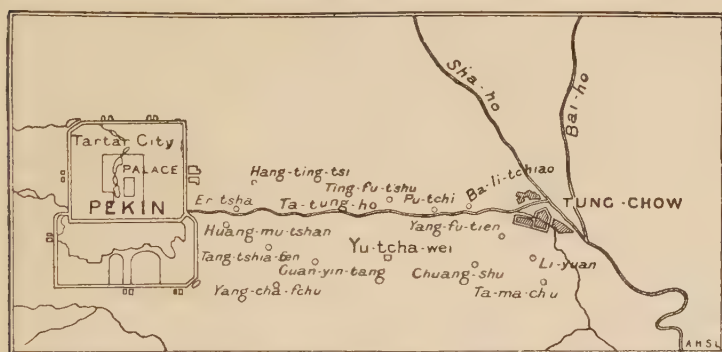 Sha-ho
Bai-ho
Tartar City
PALACE
PEKIN
Hang-ting-tsi
Ting-fu-t'shu
Er-tsha
Ta-tung-ho
Pu-tchi
Ba-li-tchiao
TUNG-CHOW
Huang-mu-tshan
Yang-fu-tien
Tang-tshia-fen
Yu-tcha-wei
Guan-yin-tang
Chuang-shu
Li-yuan
Yang-cha-fchu
Ta-ma-chu